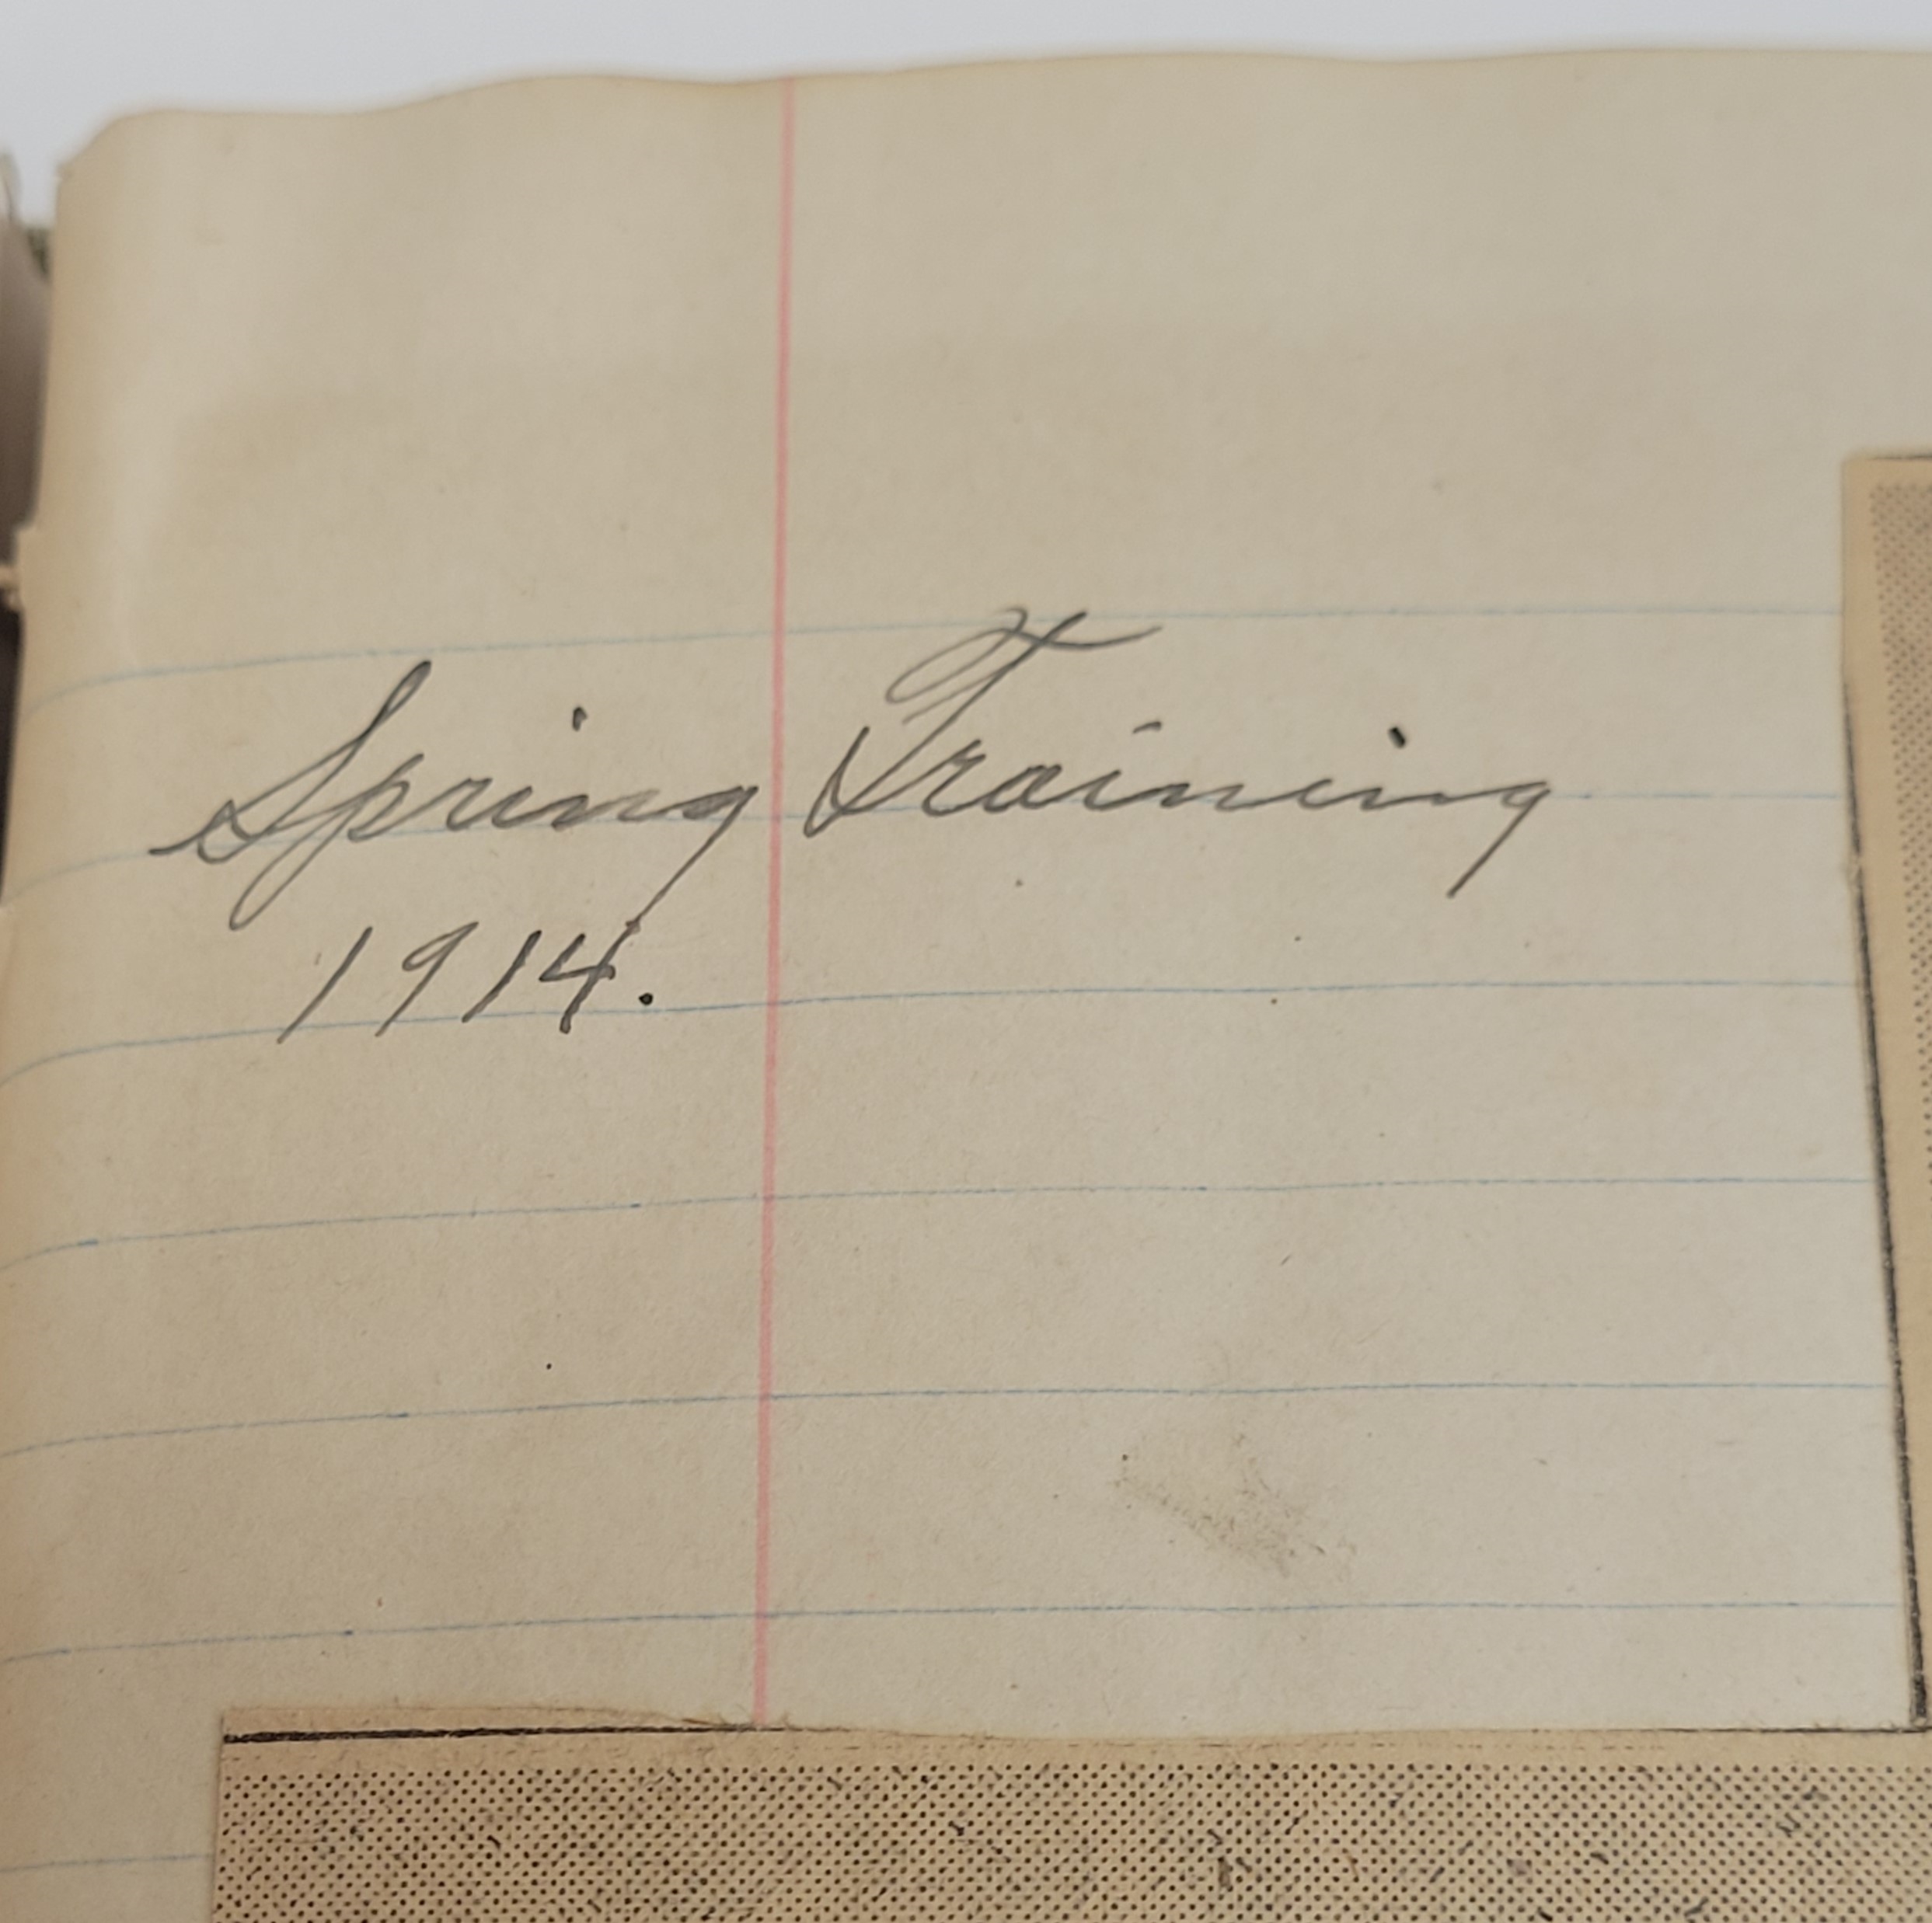 Spring Training
1914.